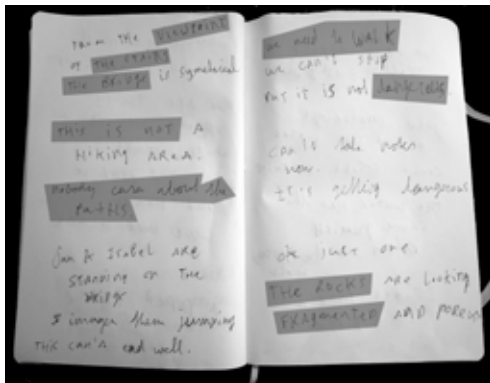 from the VIEWPOINT
of THE STAIRS
THE BRIDGE is symetrical
THIS IS NOT A
Hiking AREA.
nobody cares about the
paths
Jan & Isabel ARE
STANDING ON THE
BRIDGE
I imagen them jumping
THIS CAN'T end well.
we need to WALK
we can't stop
BUT it is not
can't take notes
now.
It's getting dangerous
ok just one.
THE ROCKS ARE looking
FRAGMENTED AND POROUS